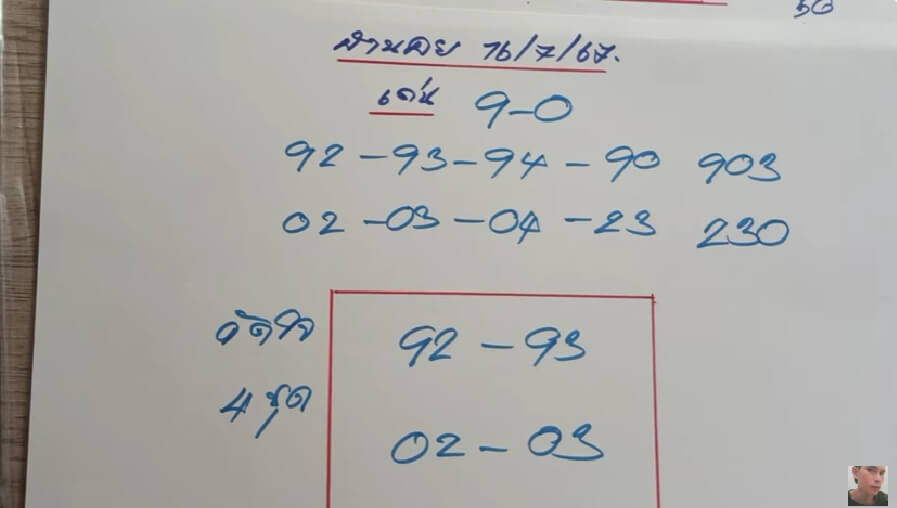 50
ฮานอย 16/7/67.
เด่น 9-0
92-93-94-90 903
02-03-04-23 230
วัดใจ 92-93
4 ชุด 02-03